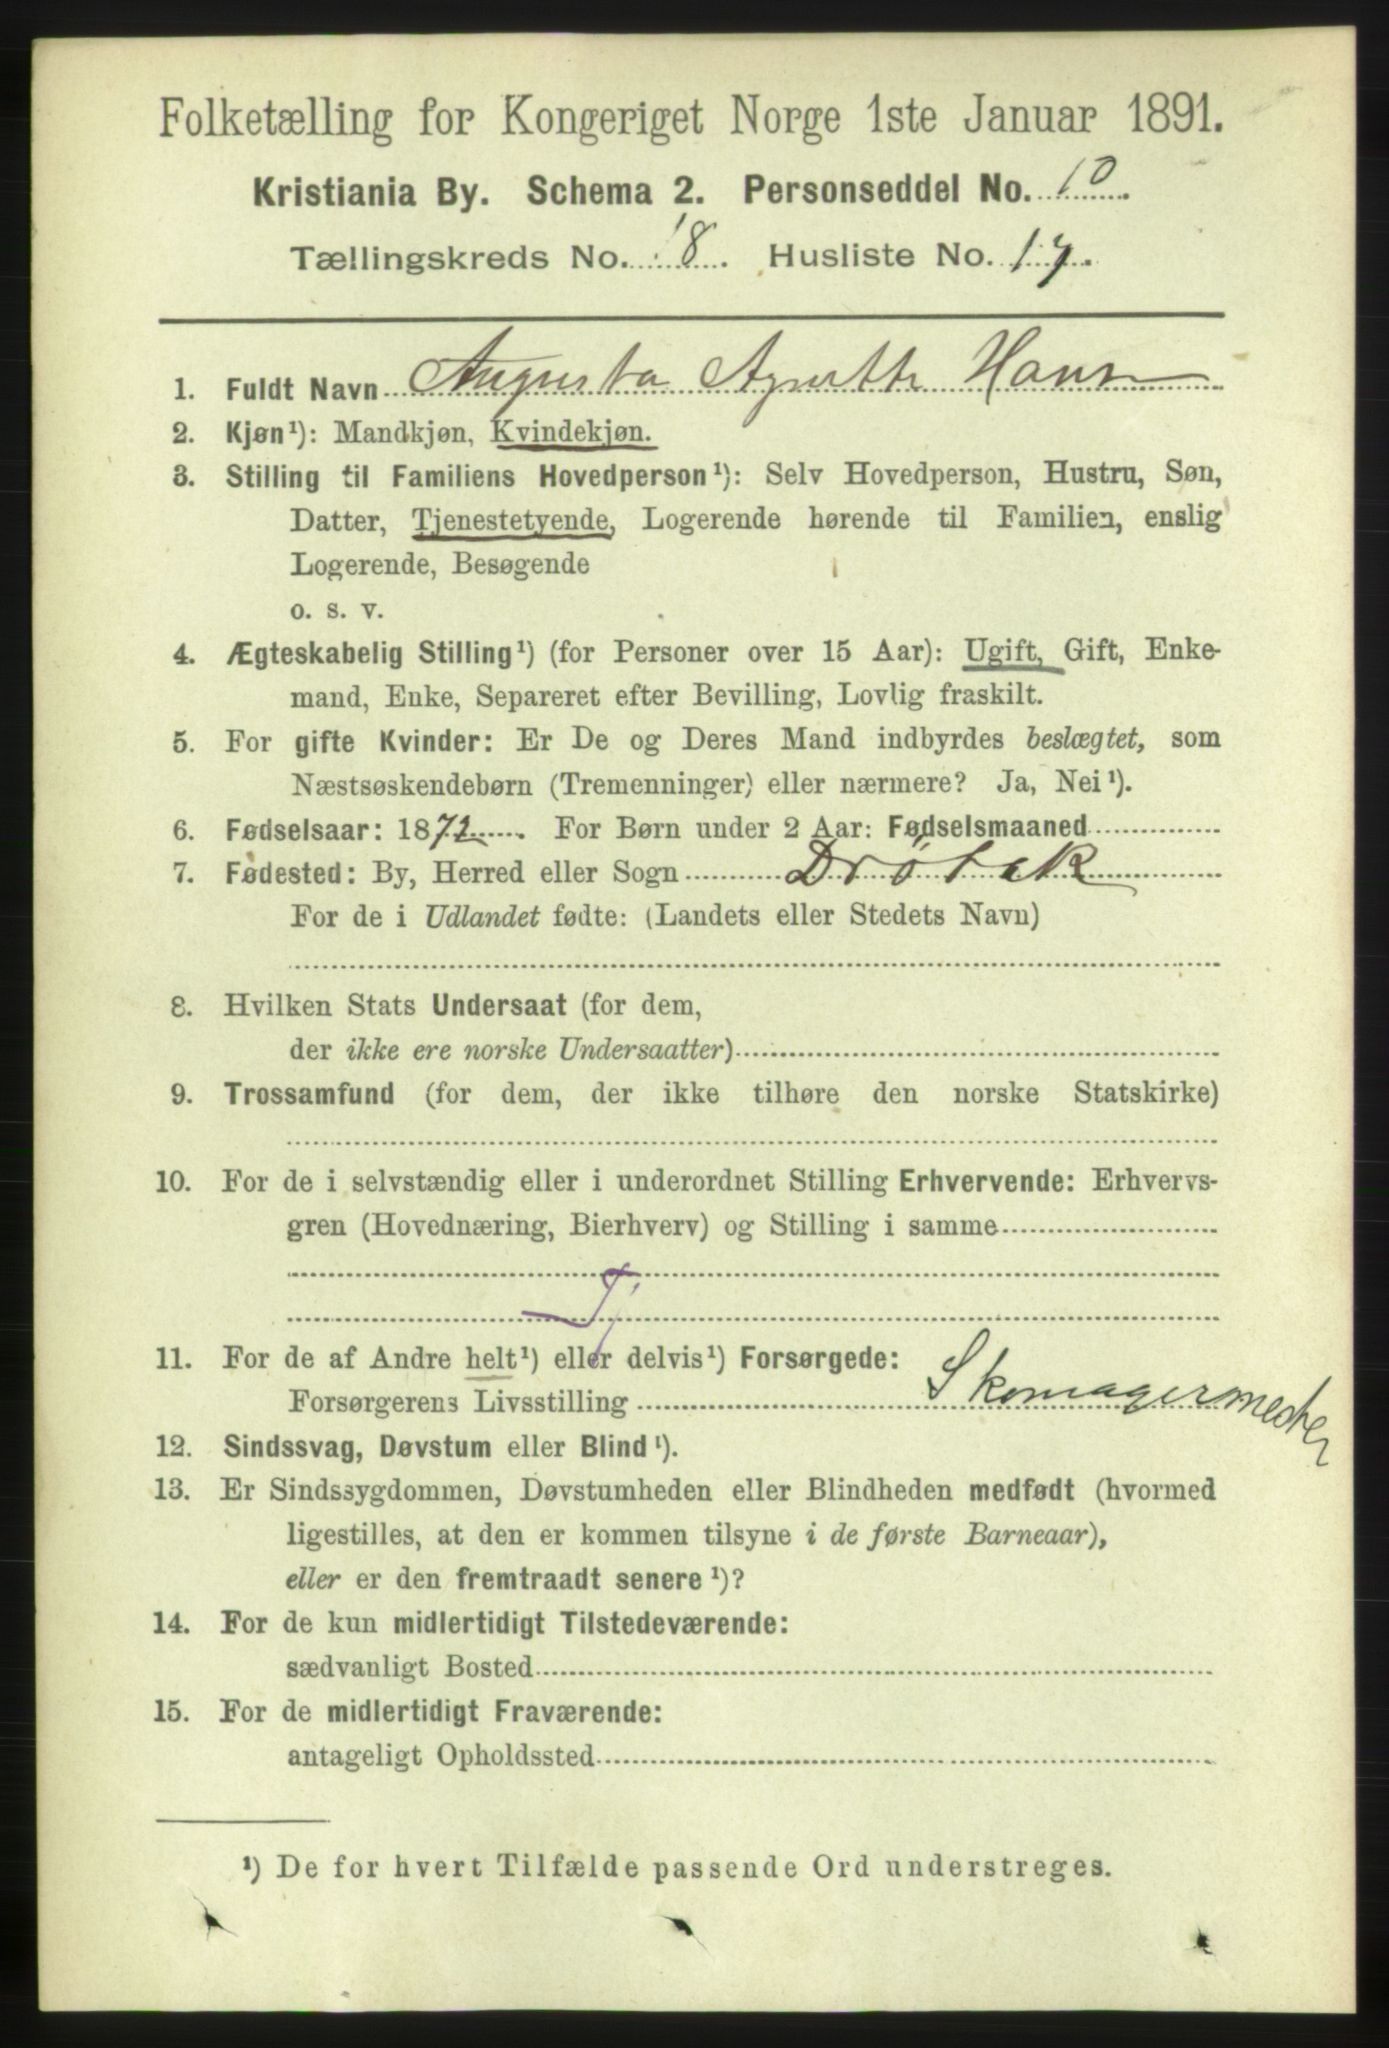 Folketælling for Kongeriget Norge 1ste Januar 1891.
Kristiania By. Schema 2. Personseddel No. 10.
Tællingskreds No. 18. Husliste No. 17.
1. Fuldt Navn Augusta Agnethe
2. Kjøn¹): Mandkjøn, Kvindekjøn.
3. Stilling til Familiens Hovedperson¹): Selv Hovedperson, Hustru, Søn,
Datter, Tjenestetyende, Logerende hørende til Familien, enslig
Logerende, Besøgende
o. s. v.
4. Ægteskabelig Stilling¹) (for Personer over 15 Aar): Ugift, Gift, Enke-
mand, Enke, Separeret efter Bevilling, Lovlig fraskilt.
5. For gifte Kvinder: Er De og Deres Mand indbyrdes beslægtet, som
Næstsøskendebørn (Tremenninger) eller nærmere? Ja, Nei¹).
6. Fødselsaar: 1872. For Børn under 2 Aar: Fødselsmaaned
7. Fødested: By, Herred eller Sogn Drøbak
For de i Udlandet fødte: (Landets eller Stedets Navn)
8. Hvilken Stats Undersaat (for dem,
der ikke ere norske Undersaatter)
9. Trossamfund (for dem, der ikke tilhøre den norske Statskirke)
10. For de i selvstændig eller i underordnet Stilling Erhvervende: Erhvervs-
gren (Hovednæring, Bierhverv) og Stilling i samme
Tj
11. For de af Andre helt¹) eller delvis¹) Forsørgede:
Forsørgerens Livsstilling Skomagermester
12. Sindssvag, Døvstum eller Blind¹).
13. Er Sindssygdommen, Døvstumheden eller Blindheden medfødt (hvormed
ligestilles, at den er kommen tilsyne i de første Barneaar),
eller er den fremtraadt senere¹)?
14. For de kun midlertidigt Tilstedeværende:
sædvanligt Bosted
15. For de midlertidigt Fraværende:
antageligt Opholdssted
¹) De for hvert Tilfælde passende Ord understreges.